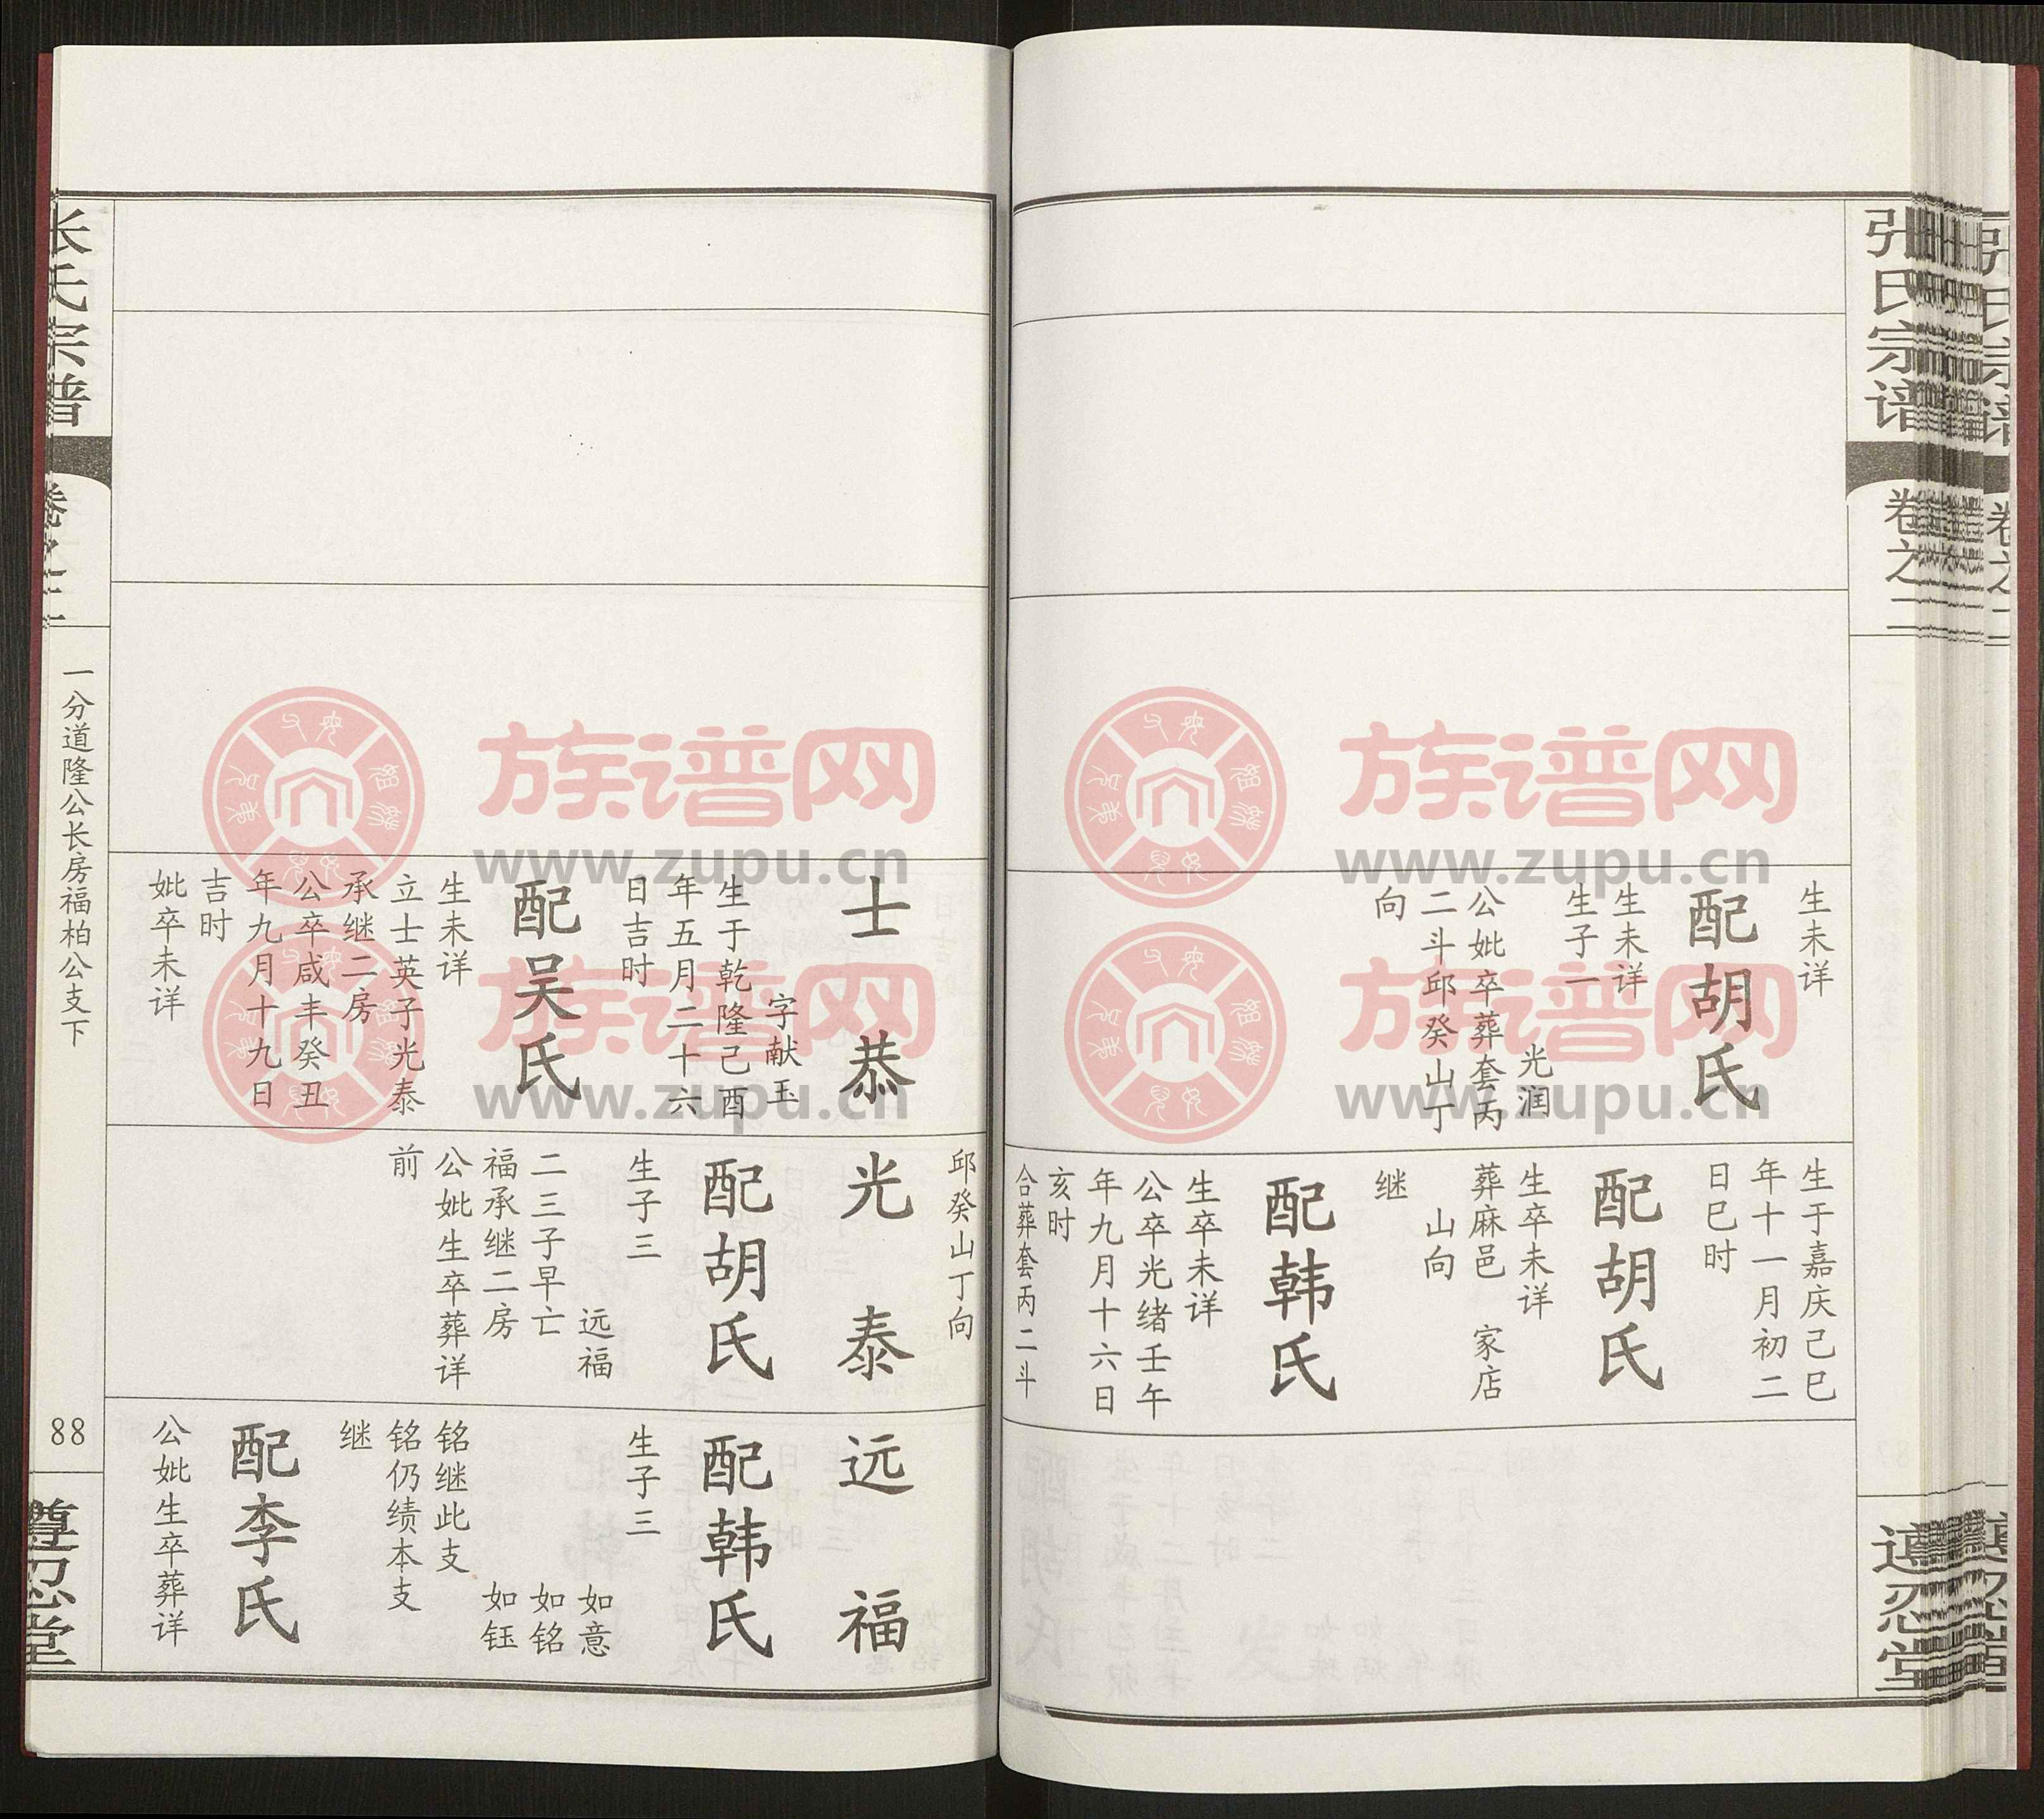 张氏宗谱
卷之二
遵忍堂
生未详
配胡氏
生未详
生子一
光润
公妣卒葬套丙
二斗邱癸山丁
向
生于嘉庆己巳
年十一月初二
日巳时
配胡氏
生卒未详
葬麻邑 家店
山向
继
配韩氏
生卒未详
公卒光绪壬午
年九月十六日
亥时
合葬套丙二斗
邱癸山丁向
士恭
字献玉
生于乾隆己酉
年五月二十六
日吉时
配吴氏
生未详
立士英子光泰
承继二房
公卒咸丰癸丑
年九月十九日
吉时
妣卒未详
光泰
配胡氏
生子三
远福
二三子早亡
福承继二房
公妣生卒葬详
前
远福
配韩氏
生子三
如意
如铭
如钰
铭继此支
铭仍绩本支
继
配李氏
公妣生卒葬详
张氏宗谱
卷之二
一分道隆公长房福柏公支下
88
遵忍堂
族谱网
www.zupu.cn
族谱网
www.zupu.cn
族谱网
www.zupu.cn
族谱网
www.zupu.cn